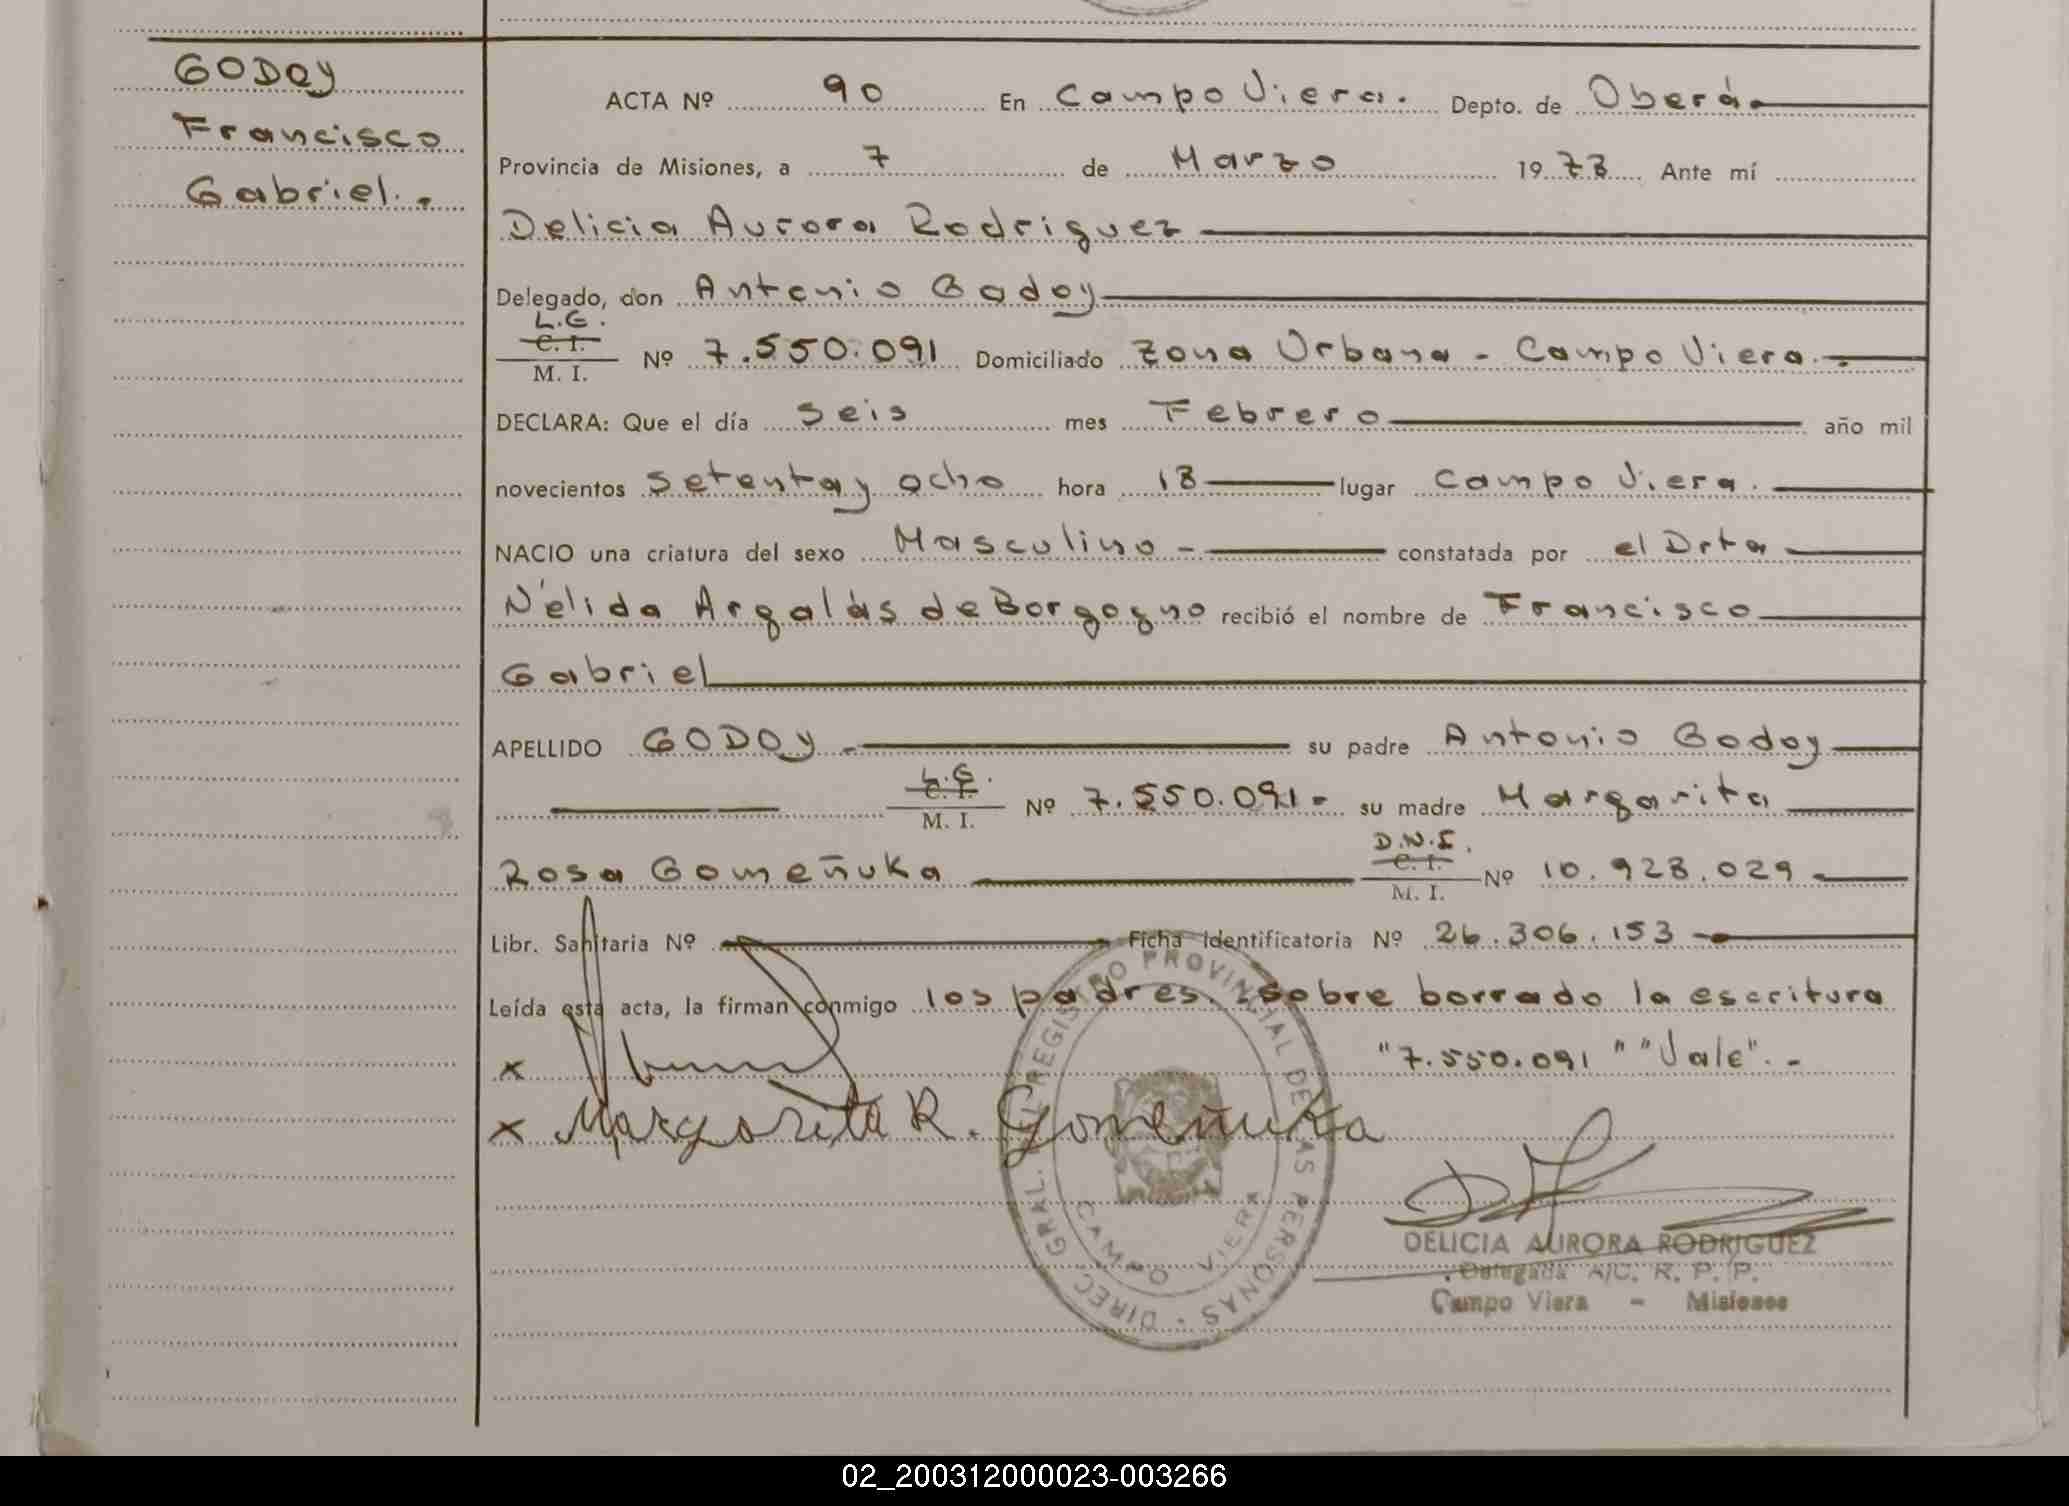 GODOY
Francisco
Gabriel.-
ACTA Nº 90 En Campo Viera. Depto. de Oberá.
Provincia de Misiones, a 7 de Marzo 1978 Ante mí
Delicia Aurora Rodriguez
Delegado, don Antonio Godoy
L.E.
C. I.
M. I.
Nº 7.550.091 Domiciliado Zona Urbana - Campo Viera.-
DECLARA: Que el día seis mes Febrero año mil
novecientos setenta y ocho hora 18 lugar Campo Viera.
NACIO una criatura del sexo Masculino - constatada por el Drta
Nélida Argalás de Borgogno recibió el nombre de Francisco
Gabriel
APELLIDO GODOY.- su padre Antonio Godoy
L.E.
C. I.
M. I.
Nº 7.550.091- su madre Margarita
Rosa Gomeñuka
D.N.I.
C. I.
M. I.
Nº 10.928.029.
Libr. Sanitaria Nº Ficha Identificatoria Nº 26.306.153
Leída esta acta, la firman conmigo los padres. sobre borrado la escritura
"7.550.091" "Vale".-
x
x Margarita R. Gomeñuka
DIREC. GRAL. DEL REGISTRO PROVINCIAL DE LAS PERSONAS
CAMPO VIERA
DELICIA AURORA RODRIGUEZ
Delegada A/C. R. P. P.
Campo Viera - Misiones
02_200312000023-003266